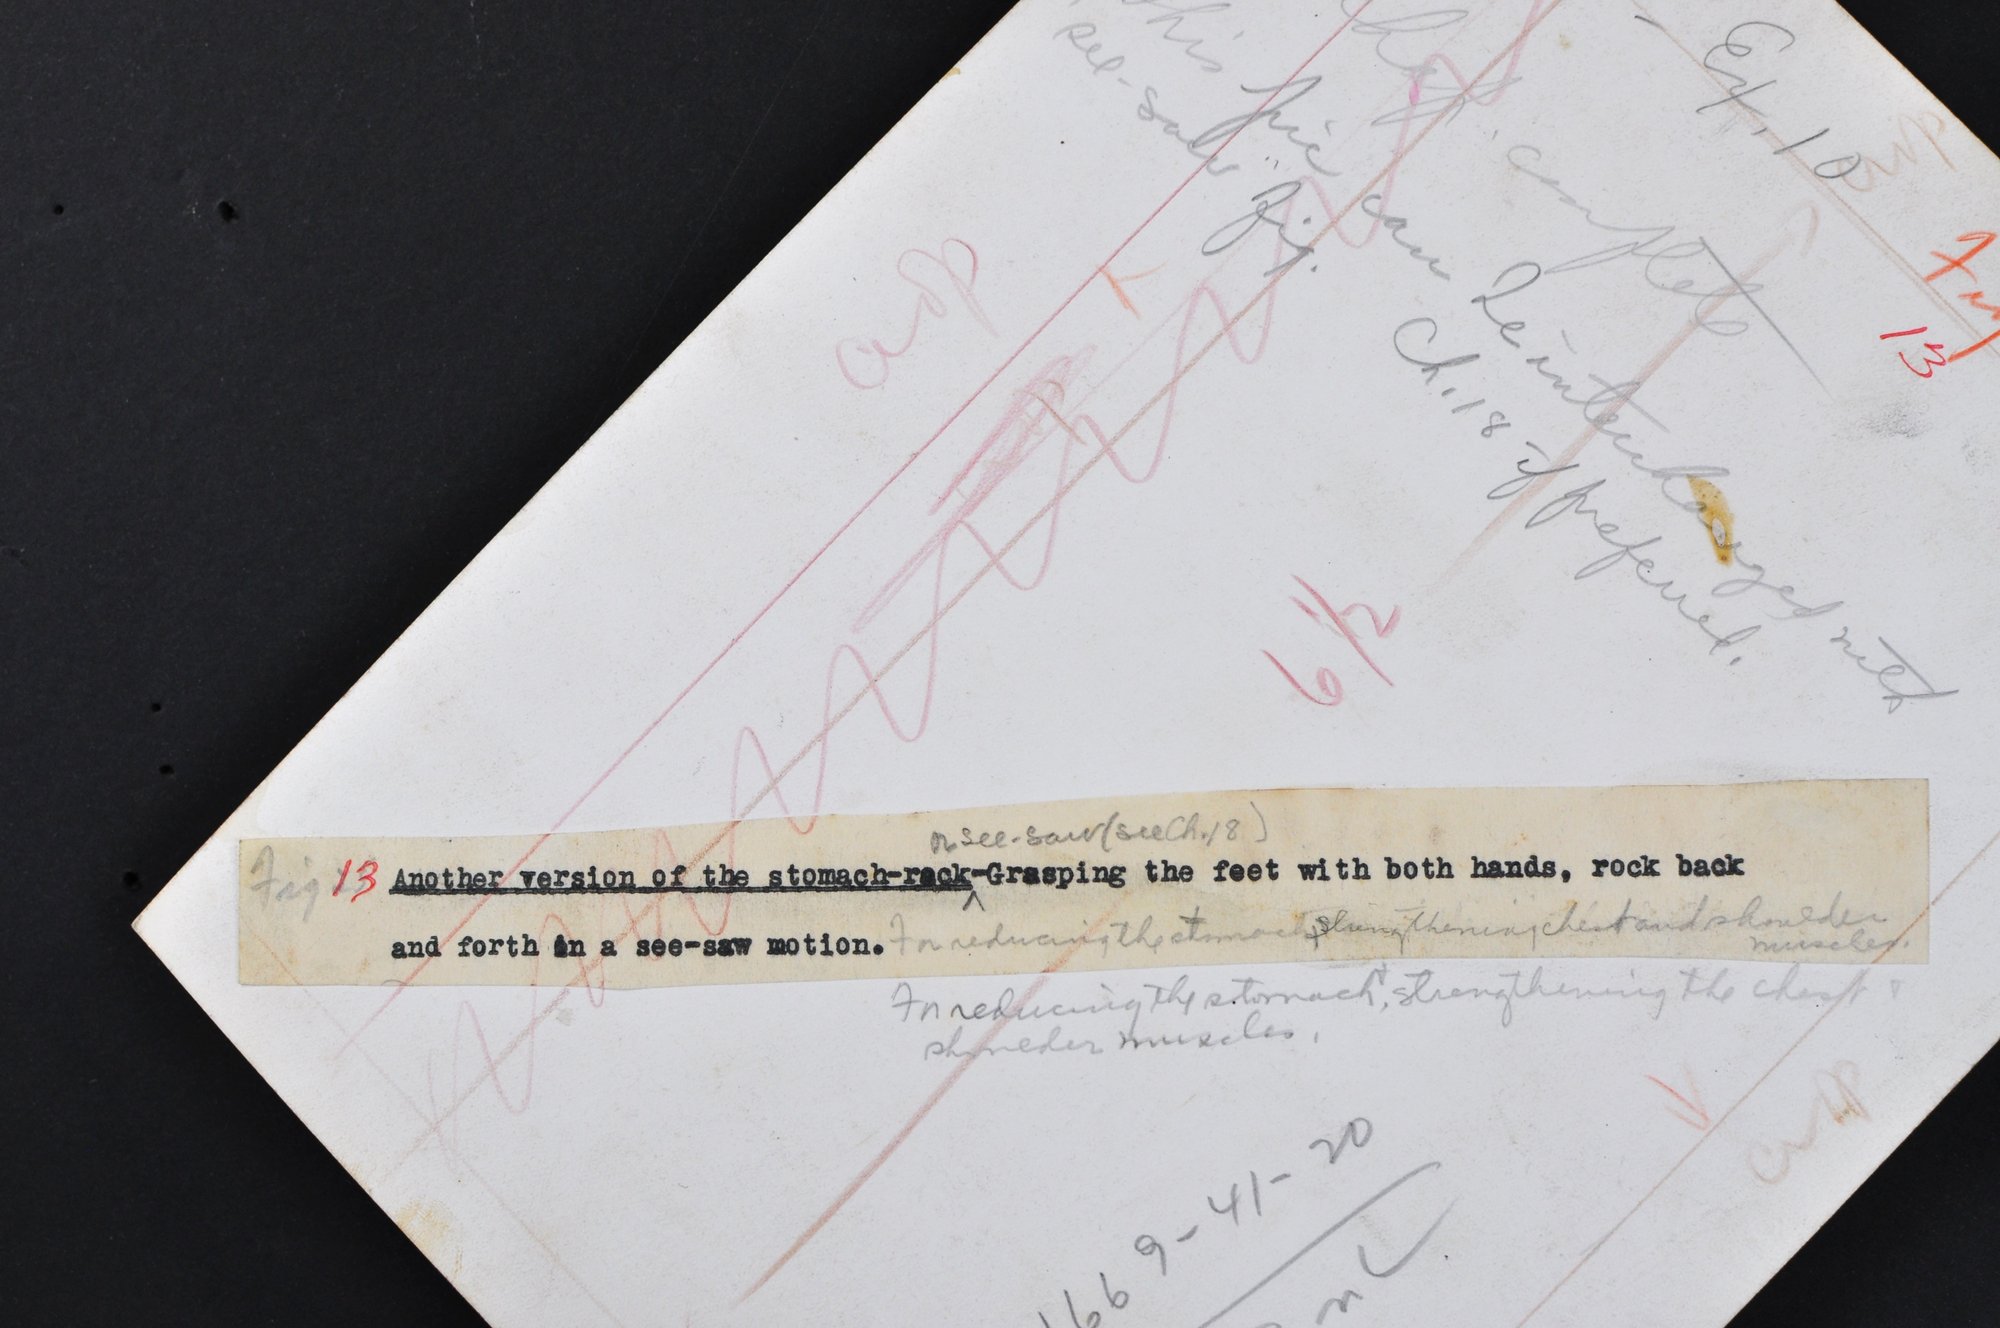 Ex. 10
Fig
13
this pic can be interchanged with
see-saw fig. Ch. 18 if preferred.
6 1/2
or see-saw (see Ch. 18)
Fig 13 Another version of the stomach-rock-Grasping the feet with both hands, rock back
and forth in a see-saw motion. For reducing the stomach, strengthening chest and shoulder
muscles.
For reducing the stomach, strengthening the chest &
shoulder muscles.
1669-41-20